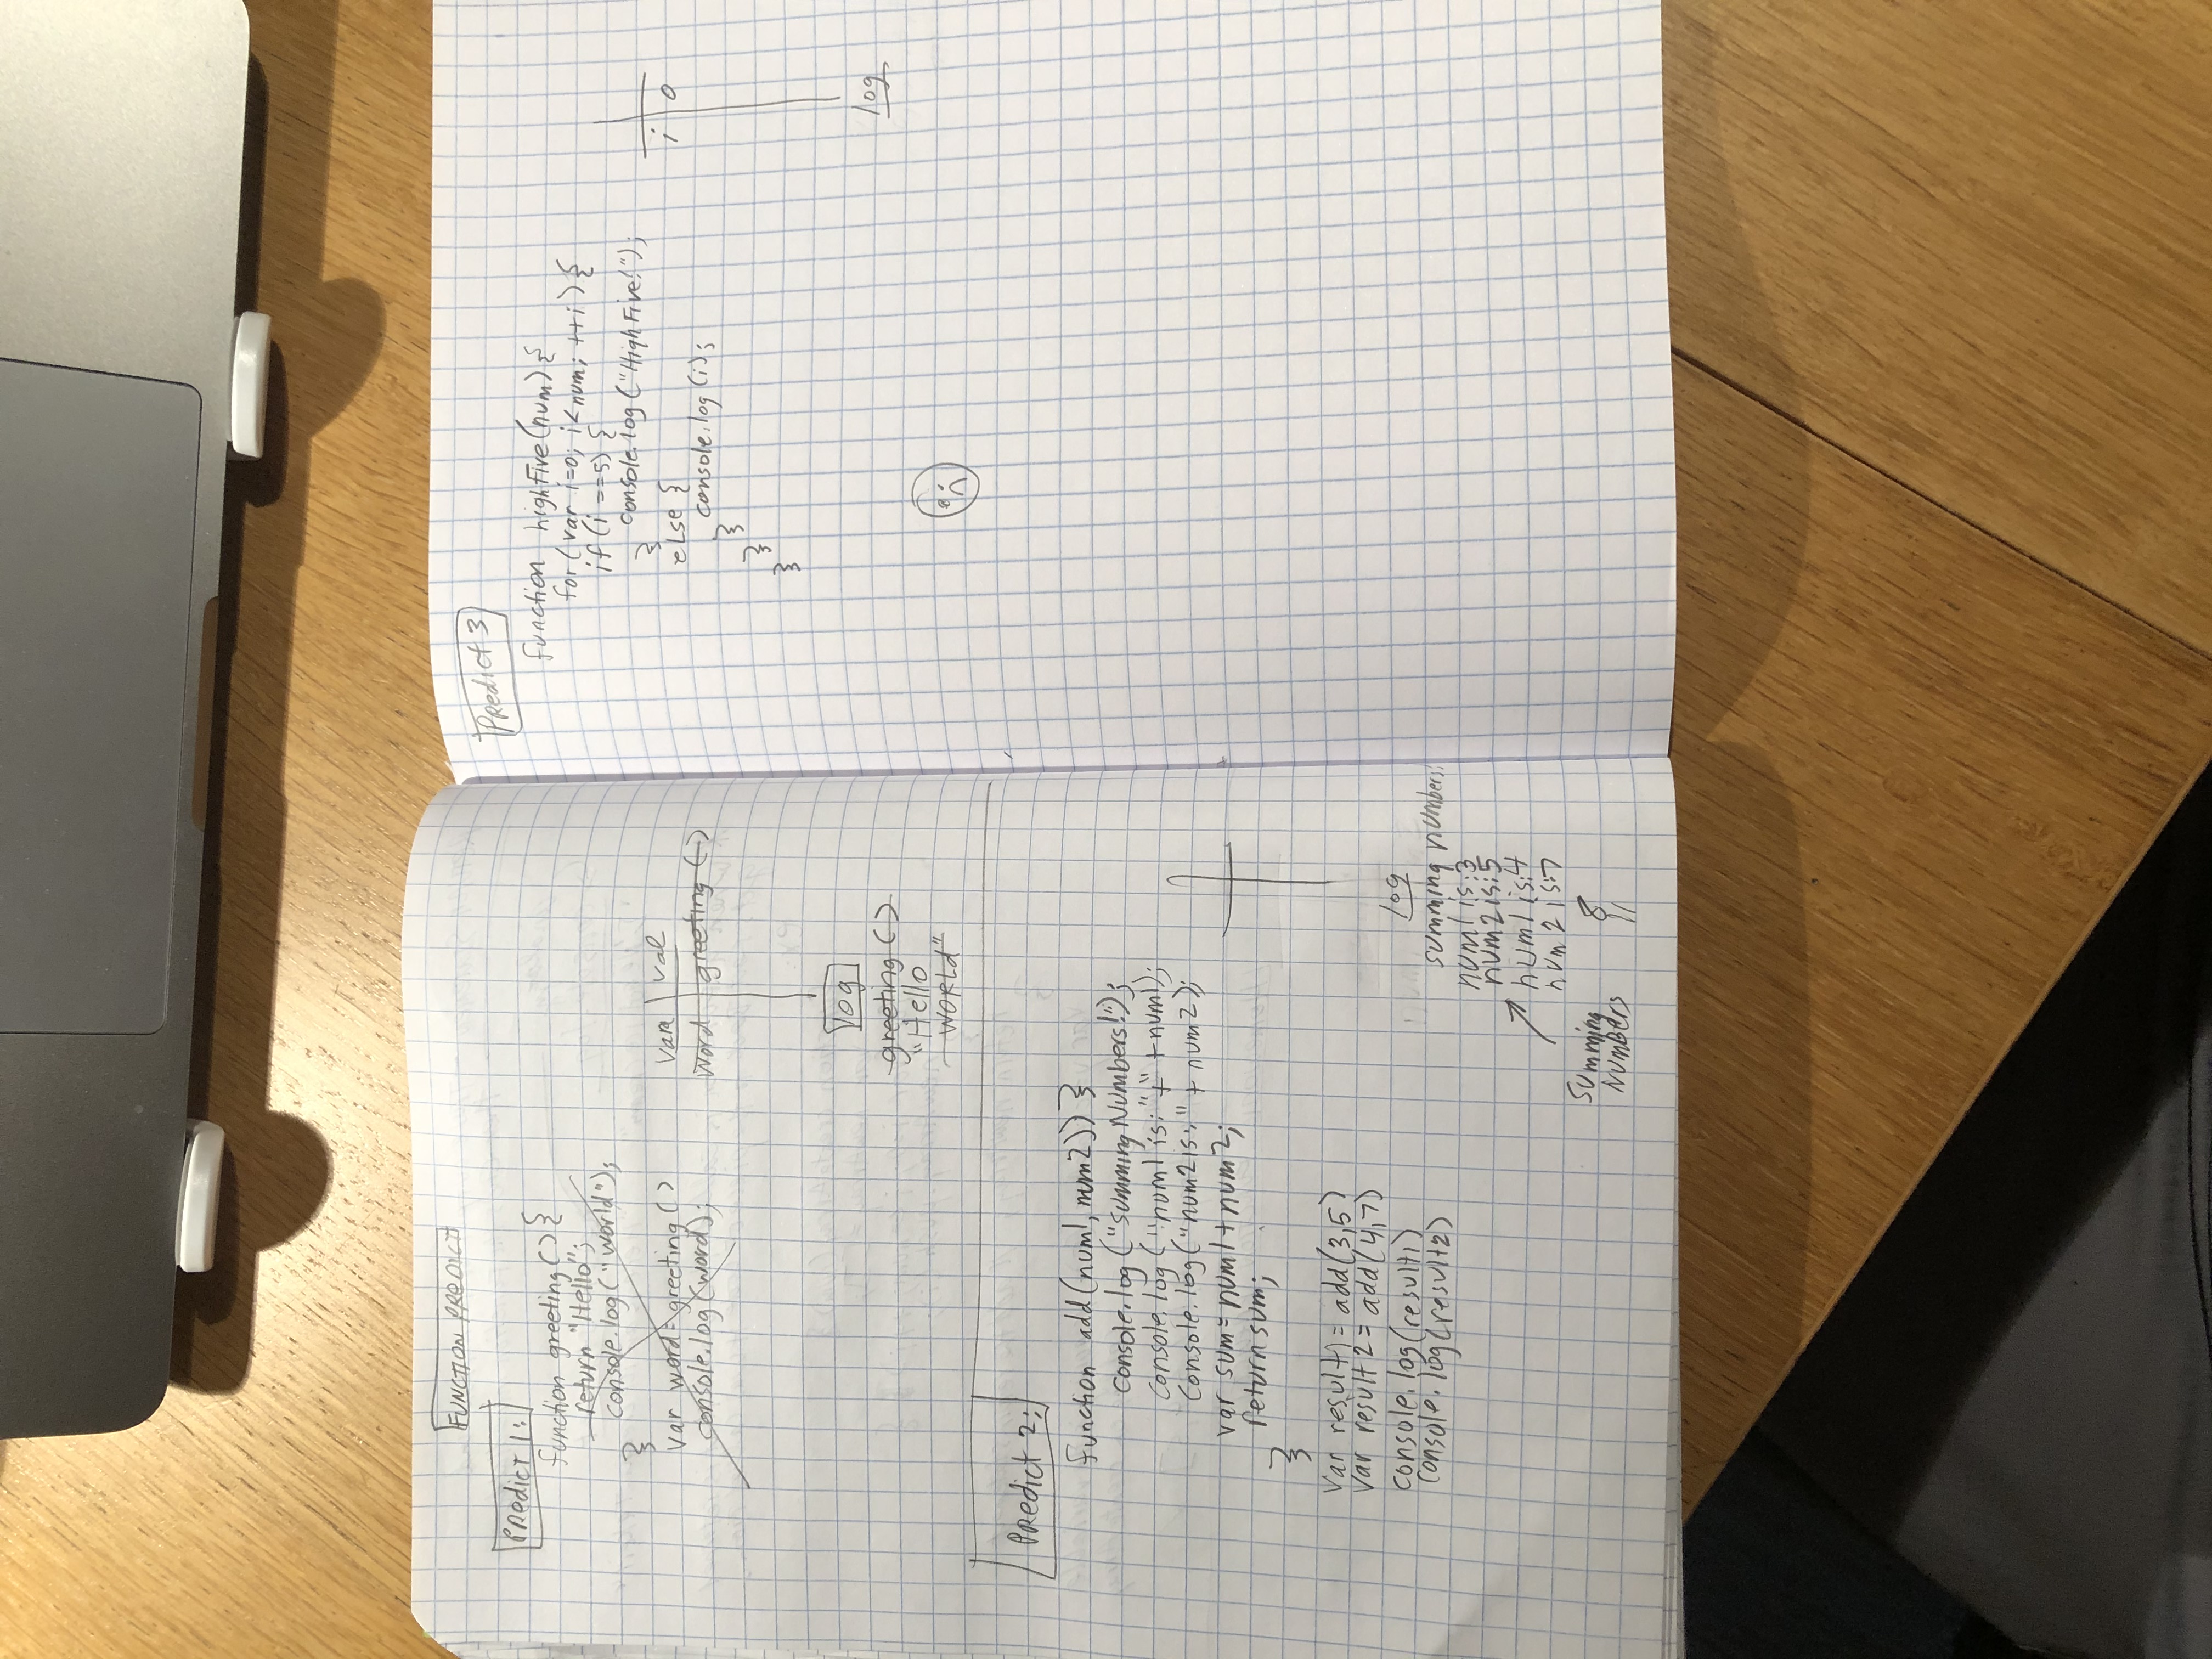 FUNCTION PREDICT
Predict 1:
function greeting() {
return "Hello";
console.log("world");
}
var word = greeting()
console.log(word);
Vara | val
word | greeting()
log
greeting()
"Hello
WORLd"
Predict 2:
function add(num1, num2)) }
Console.log("summing Numbers!");
Console.log("num1 is: "+" +num1);
Console.log("num2 is: " + num2);
var sum = num1 + num2;
return sum;
}
Var result1 = add(3,5)
Var result2 = add(4,7)
console.log(result1)
Console.log(result2)
log
summing numbers!
num1 is:3
num2 is:5
num1 is:4
num2 is:7
Summing
NUMBERS
8
11
Predict 3
function highFive(num){
for(var i=0; i<num; ++i){
if(i ==5){
console.log("High Five!");
}
else {
console.log(i);
}
}
}
i | 0
log